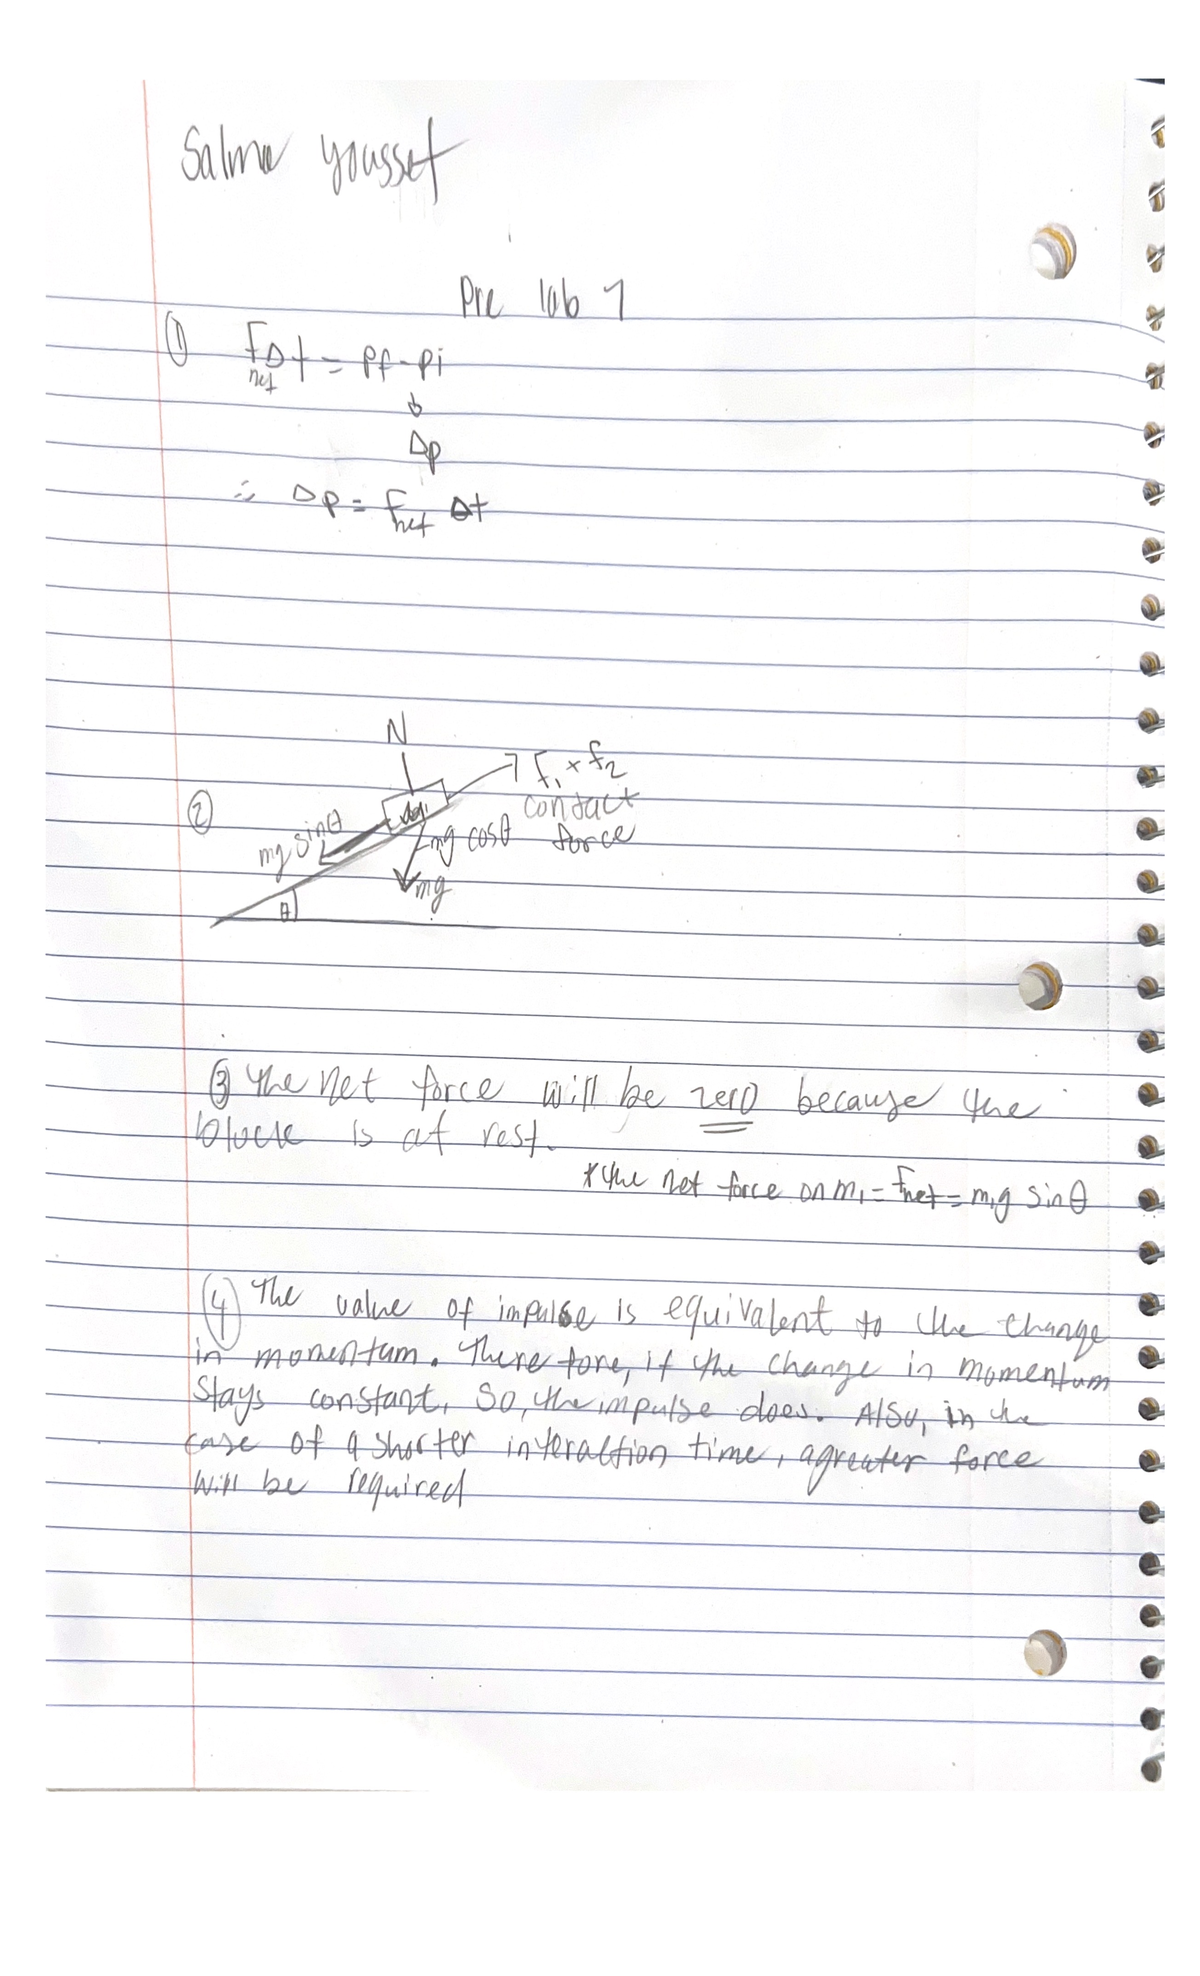 Salma youssef
Pre lab 7
① Fnet Δt = Pf - Pi
↓
Δp
∴ Δp = Fnet Δt
②
N
f₁ + f₂
contact
force
mg sinθ
mg cosθ
mg
θ
③ The net force will be zero because the
block is at rest.
* the net force on m₁ = Fnet = m₁g sinθ
④ The value of impulse is equivalent to the change
in momentum. Therefore, if the change in momentum
stays constant, So, the impulse does. Also, in the
case of a shorter interaction time, a greater force
will be required